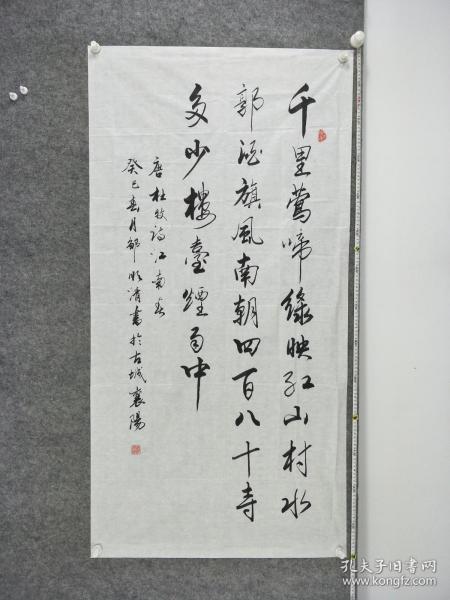 千里莺啼綠映紅山村水
郭酒旗風南朝四百八十寺
多少樓臺煙雨中
唐杜牧诗江南春
癸巳春月邹顺清書於古城襄陽
孔夫子旧書网
www.kongfz.com